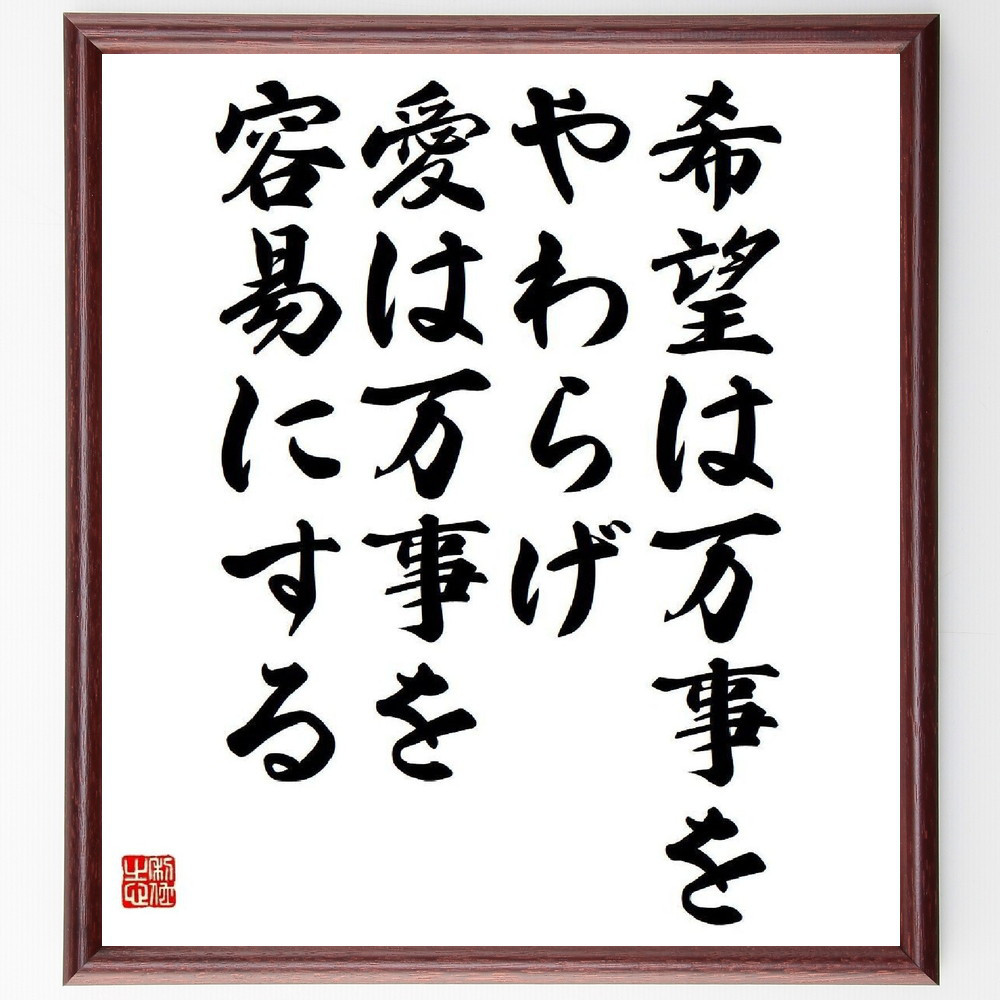 希望は万事を
やわらげ
愛は万事を
容易にする